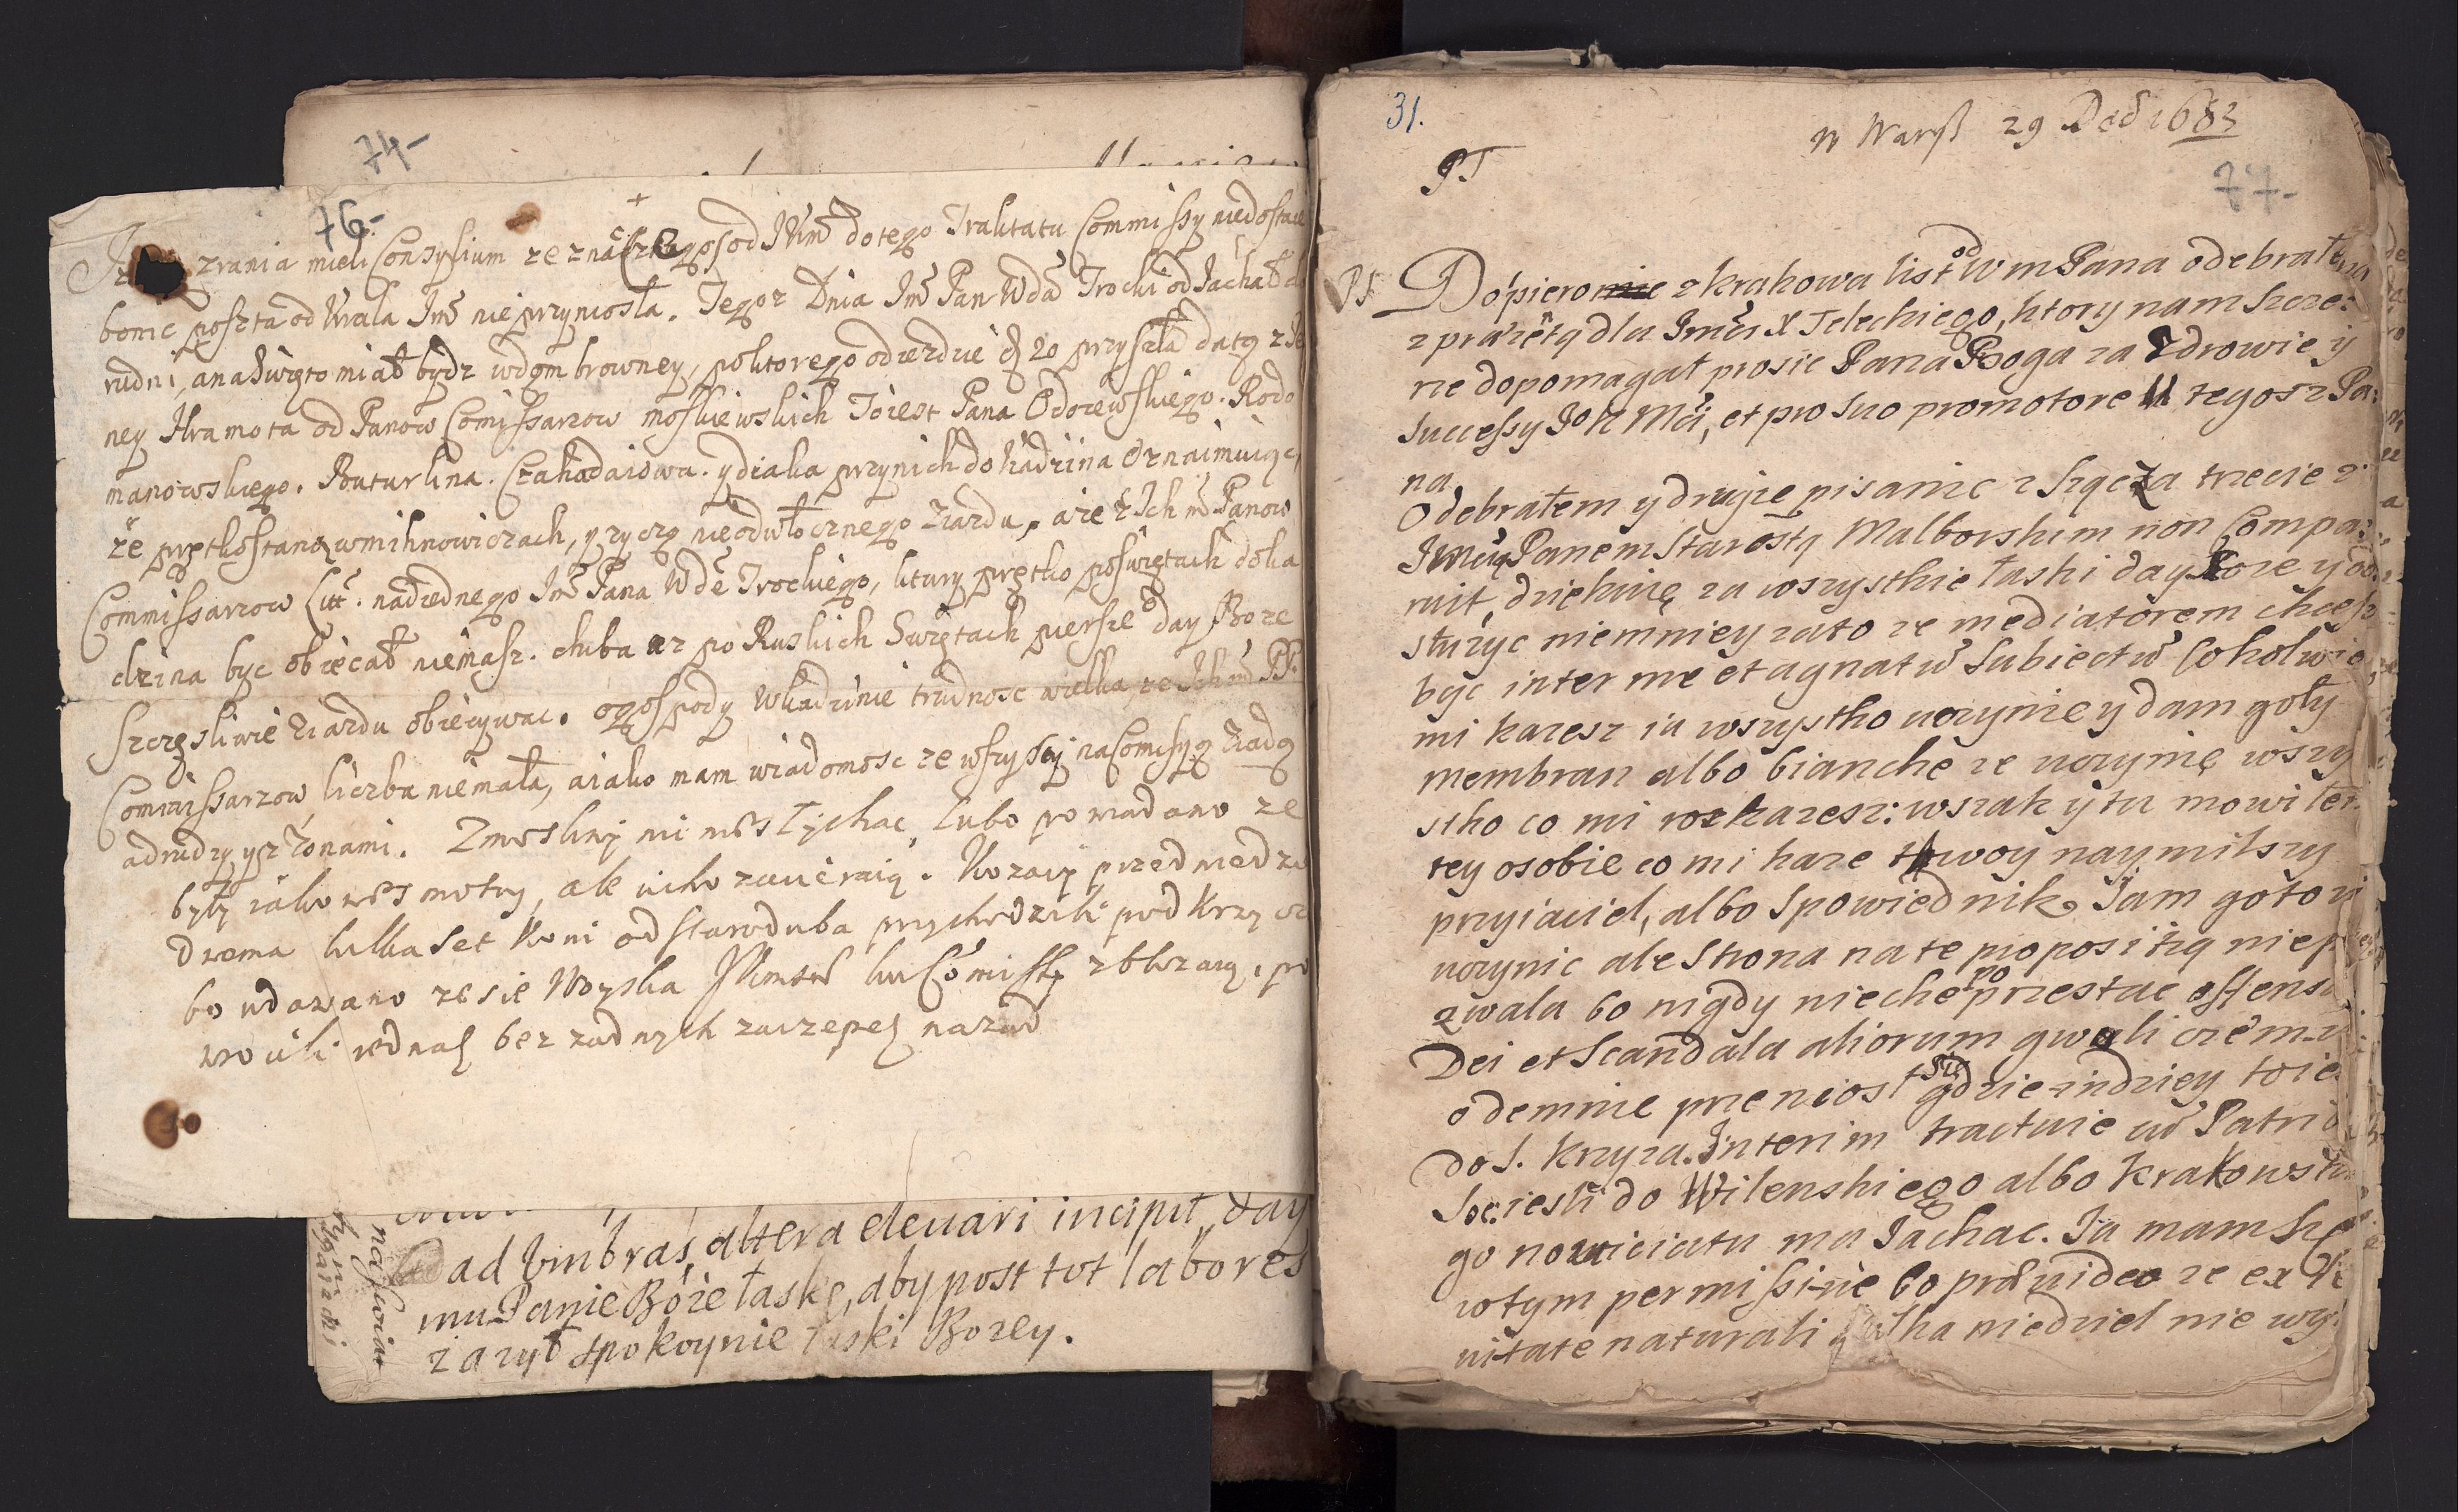 74-
76-
zrania mieli Consylium ze znac od JKM do tego Traktatu Commissy niedostaie
bonie poszta od Krola Jmć nie przyniosła. Tegoz Dnia Jmć Pan Wda Trocki odiachał
rudni, ana Swięto miał bydz wdąmbrowney, po ktorego odiezdzie d 20 przyszła datą z
ney Hramota od Panow Comissarzow moskiewskich To iest Pana Odoiewskiego. Rodo
manowskiego. Buturlina. Czahadaiowa. y diaka przynich do Kadzina Oznaimuiąc,
że prętko staną wmihnowiczach, y zyczą nieodwłocznego ziazdu, aże z Ich m Panow
Commissarzow Litt. nadiednego Jmć Pana Wdę Trockiego, ktury prętko poswiętach do Ka
dzina byc obiecał niemasz. chiba az po Ruskich Swiętach piersze day Boze
Szczęsliwie ziazdu obiecywac. o gospody w Kadzinie trudnosc wielka, ze Ich m PP.
Commissarzow liczba niemała, aiako mam wiadomosc ze wszyscy na Comissyą ziadą
adrudzy y z Zonami. Zmoskwy nic nie słychac, lubo powiadano ze
były iakowes motny, ale cicho zawieraią. Kozacy przed niedziel
dwema kilka set koni od Staroduba przychodzili pod Krzycz
bo udawano ze sie Woyska JKmści ku Comissy zblizaią, po
wrocili iednak bez zadnych zaczepek nazad
ad Umbras, altera elevari incipit, day
mu Panie Boże łaskę, aby post tot labores
zazył spokoynie łaski Bozey.
31.
w Warsz 29 Dec 1683
77-
PT
PS. Dopiero z krakowa list od Wm Pana odebrałem
z prazetą dla Jmci X Teleckiego, ktory nam szcze:
rze dopomagał prosic Pana Boga za Zdrowie y
successy Jo K Mći, et pro suo promotore u tegosz Pa:
na
Odebrałem y drugie pisanie z Kącza trzecie z
Jmcią Panem Starostą Malborskim non Compa:
ruit, dziekuię za wszystkie łaski day Boze y od:
służyc niemniey zato ze mediatorem chcesz
byc inter me et agnatum Subiectum Cokolwie
mi kazesz ia wszystko uczynie y dam goły
membran albo bianche ze uczynię wszy
stko co mi rozkazesz: wszak y tu mowiłem
tey osobie co mi kaze twoy naymilszy
przyiaciel, albo Spowiednik. Jam gotow
uczynic ale Strona na te propositią niep
zwala bo nigdy niechce poprzestac offensa
Dei et Scandala aliorum gwoli czemu
odemnie przeniosł się gdzie indziey toie
do S. krzyza. Interim tractuie cum Patrib
Soc: iesli do Wilenskiego albo krakowski
go nowiciatu ma Jachac. Ja mam
wtym permissie bo praevideo ze ex
uitate naturali kilka niedziel nie wy